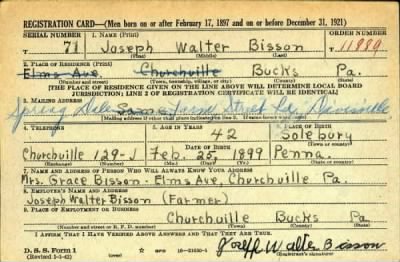 REGISTRATION CARD—(Men born on or after February 17, 1897 and on or before December 31, 1921)
SERIAL NUMBER 1. NAME (Print) ORDER NUMBER
71 Joseph Walter Bisson 11989
2. PLACE OF RESIDENCE (Print)
Elms Ave Churchville Bucks Pa.
(Number and street) (Town, township, village, or city) (County) (State)
[THE PLACE OF RESIDENCE GIVEN ON THE LINE ABOVE WILL DETERMINE LOCAL BOARD
JURISDICTION; LINE 2 OF REGISTRATION CERTIFICATE WILL BE IDENTICAL]
3. MAILING ADDRESS
Spring Dale Same Farm Street Rd.
[Mailing address if other than place indicated on line 2. If same insert word same]
4. TELEPHONE 5. AGE IN YEARS 6. PLACE OF BIRTH
42 Solebury
DATE OF BIRTH (Town or county)
Churchville 129-J Feb. 25, 1899 Penna.
(Exchange) (Number) (Mo.) (Day) (Yr.) (State or country)
7. NAME AND ADDRESS OF PERSON WHO WILL ALWAYS KNOW YOUR ADDRESS
Mrs. Grace Bisson - Elms Ave, Churchville Pa.
8. EMPLOYER'S NAME AND ADDRESS
Joseph Walter Bisson (Farmer)
9. PLACE OF EMPLOYMENT OR BUSINESS
Churchville Bucks Pa
(Number and street or R. F. D. number) (Town) (County) (State)
I AFFIRM THAT I HAVE VERIFIED ABOVE ANSWERS AND THAT THEY ARE TRUE.
D. S. S. Form 1
(Revised 1-1-42) Joseph Walter Bisson